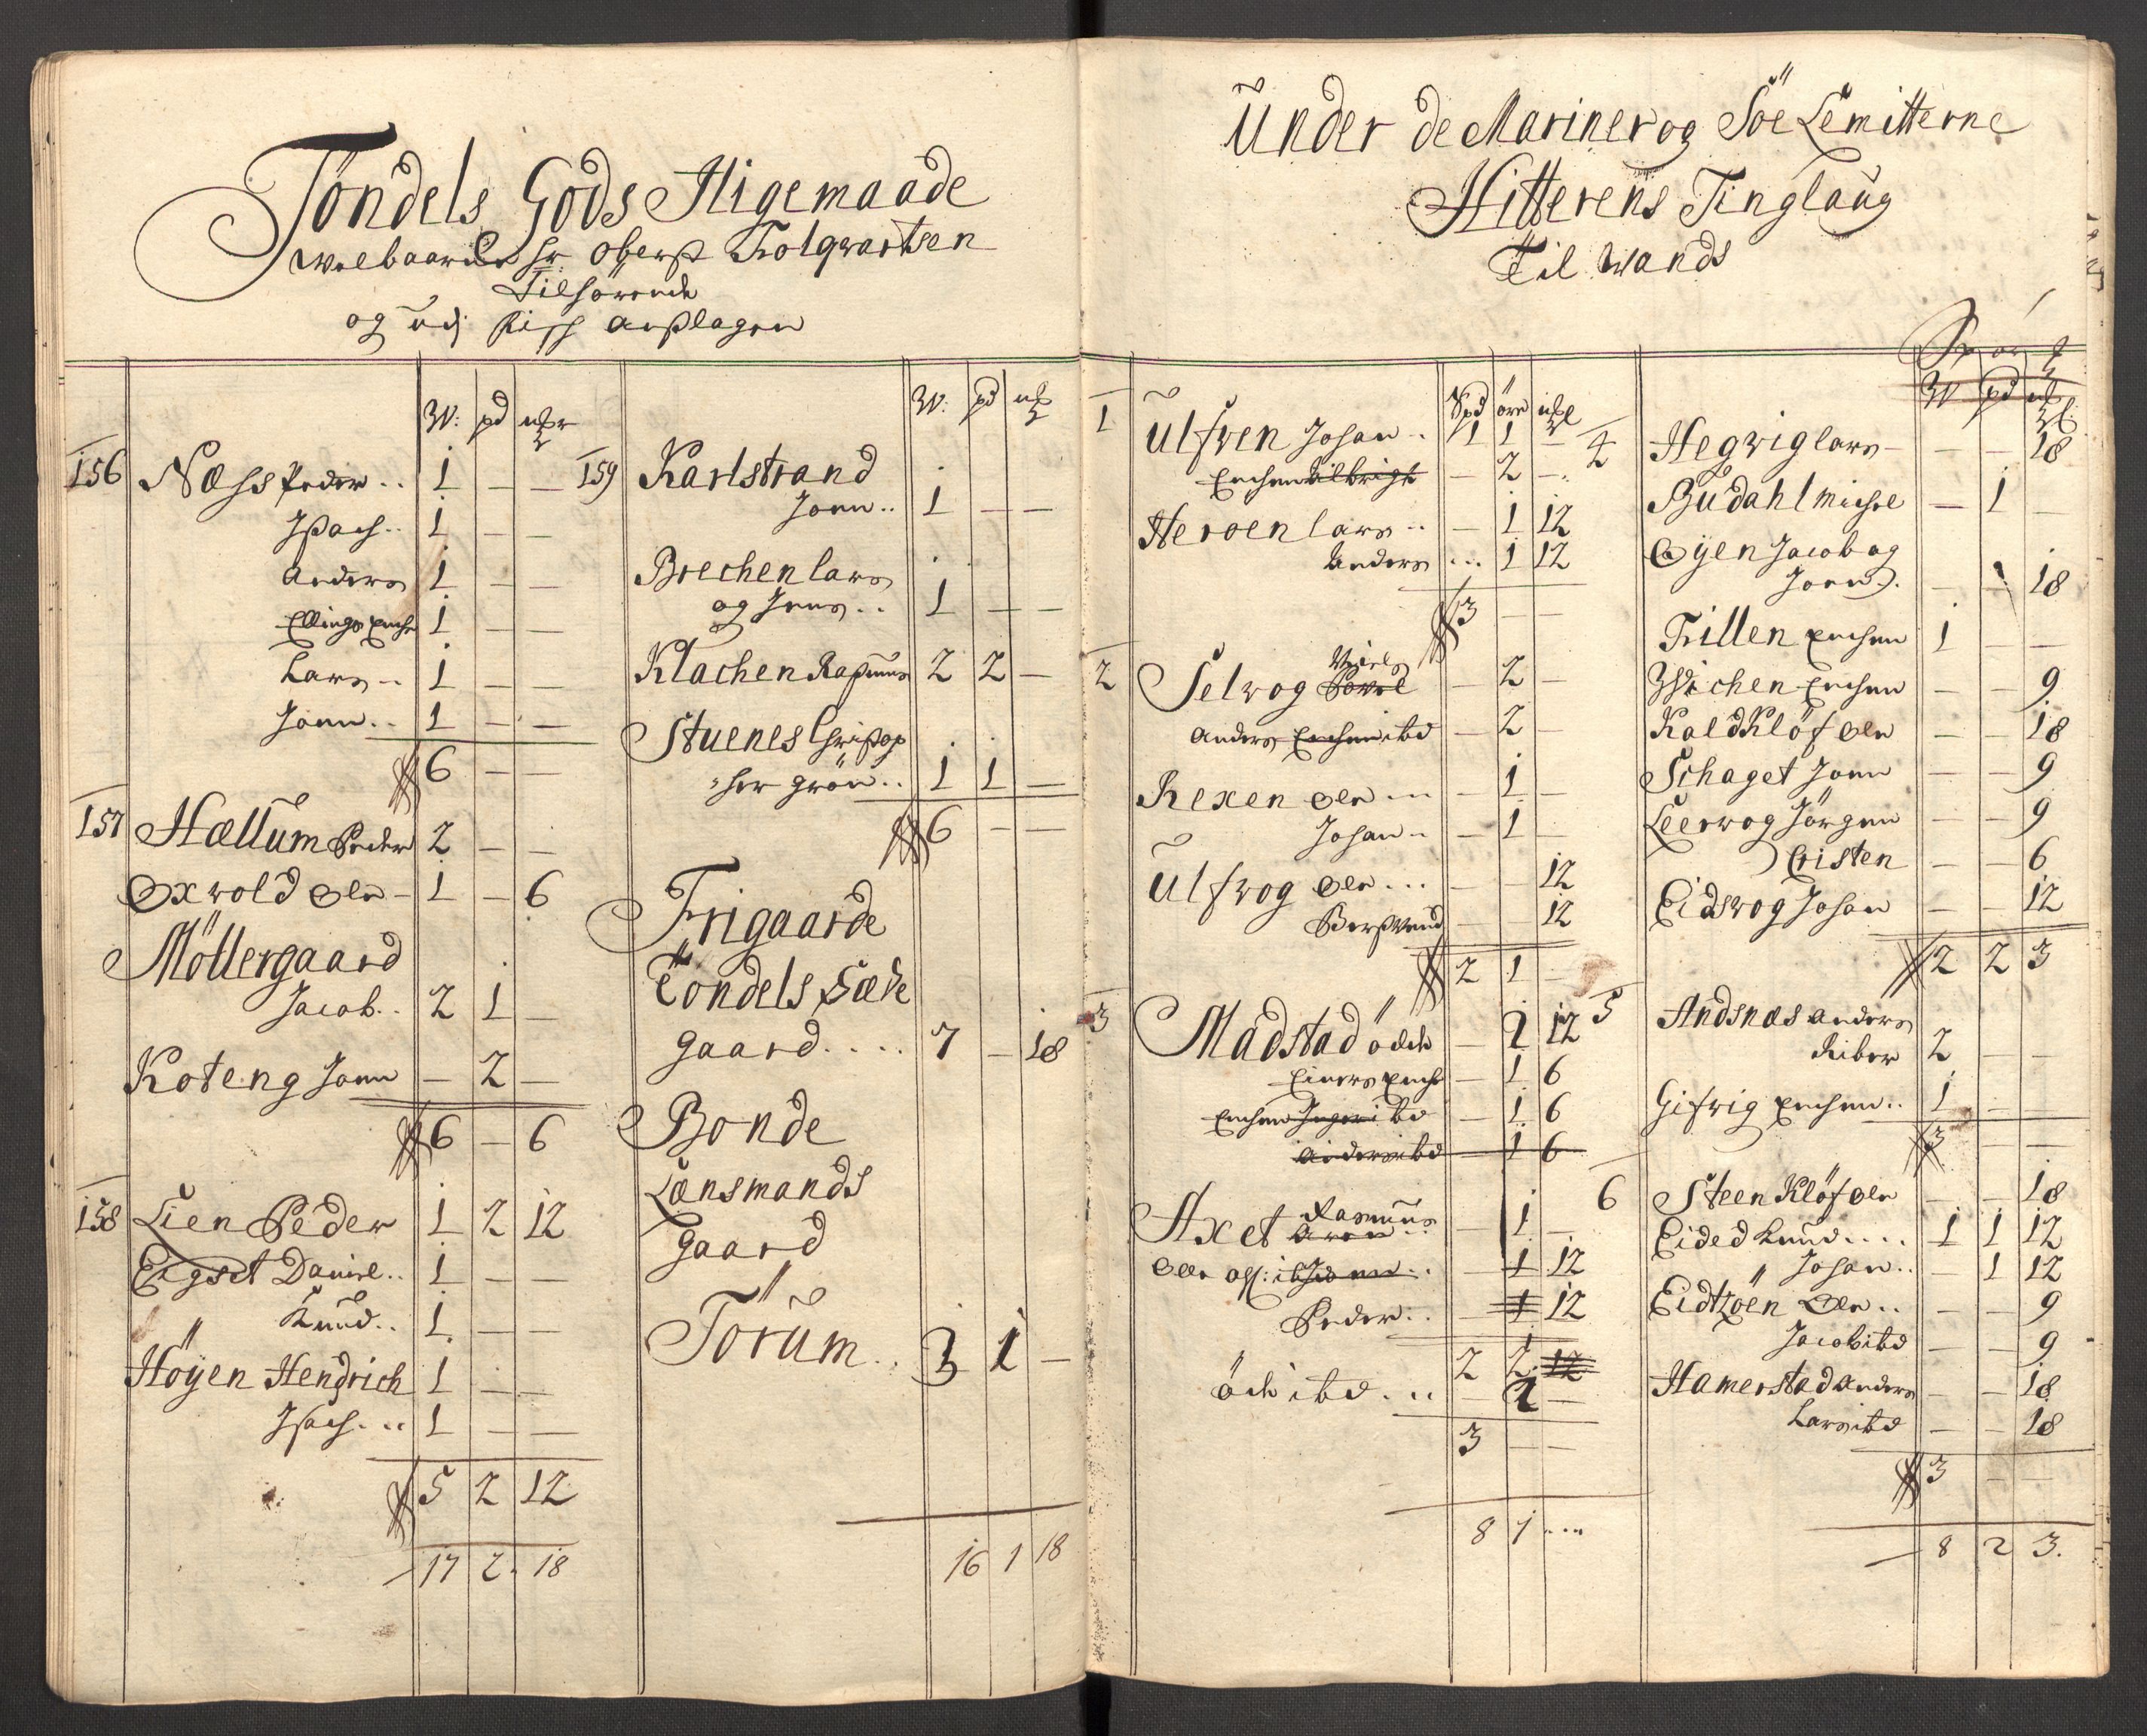 Töndels Gods Iligemaade
Welbaarne Hr Oberst Kolqwartsen
Tilhörende
og udj
W: pd
156 Næss Peder .. 1 — —
Isach .. 1 — —
Anders 1 — —
Ellings Enche 1 — —
Lars .. 1 — —
Joen .. 1 — —
6 — —
157 Hællum Peder 2 — —
Oxvold Ole - 1 — 6
Möllergaard
Jacob .. 2 1 —
Koteng Joen — 2 —
6 — 6
158 Lien Peder 1 2 12
Eigset Daniel .. 1 — —
" Knud .. 1 — —
Höyen Hendrich 1 — —
Isach ... 1 — —
5 2 12
17 2 18
W: pd
159 Karlstrand
Joen .. 1 — —
Brechen Lars
og Jens .. 1 — —
Klachen Rasmus 2 2 —
Stuenes Christop
her Grön .. 1 1 —
6 — —
Frigaarde
Töndels Sæde
gaard .... 7 — 18
Bonde
Lænsmands
Gaard
Forum .. 3 1 —
16 1 18
Under de Mariner og Söe Lemitterne
Hitterens Tinglaug
Til Wands
Spd öre
1 Ulfven Johan .. 1 1 —
Enchen — 2 —
Heroen Lars .. — 1 12
Anders ... 1 12
3 — —
2 Selvog Niels Povel — 2 —
Anders Enchen ibd — 2 —
Rexen Ole ... — 1 —
Johan .. — 1 —
Ulfvog Ole ... — — 12
— — 12
2 1 —
3 Madstad — 2 12
Einers Enche — 1 6
Enchen ibd — 1 6
Anders ibd — 1 6
Axet Rasmus — 1 —
Ole — 1 12
Peder .. — 1 12
2 2 12
ibd ... — 1 —
3 — —
8 1 ...
W pd
4 Hegvig Lars — — 18
Budahl Michel — 1 —
Öyen Jacob og
Joen .. — — 18
Killen Enchen 1 — —
Wichen Enchen — — 9
Kaldklöf Ole — — 18
Schaget Joen — — 9
Leervog Jörgen — — 9
Cristen — — 6
Eidsvog Johan — — 12
2 2 3
5 Andsnæs Anders
Riber 2 — —
Gifvig Enchen .. 1 — —
3 — —
6 Steen Klöf Ole — — 18
Eided Knud .... 1 1 12
" Johan .. — 1 12
Eidtzöen Ole .. — — 9
Jacob ibd — — 9
Hamerstad Anders — — 18
Lars ibd — — 18
3 — —
8 2 3.